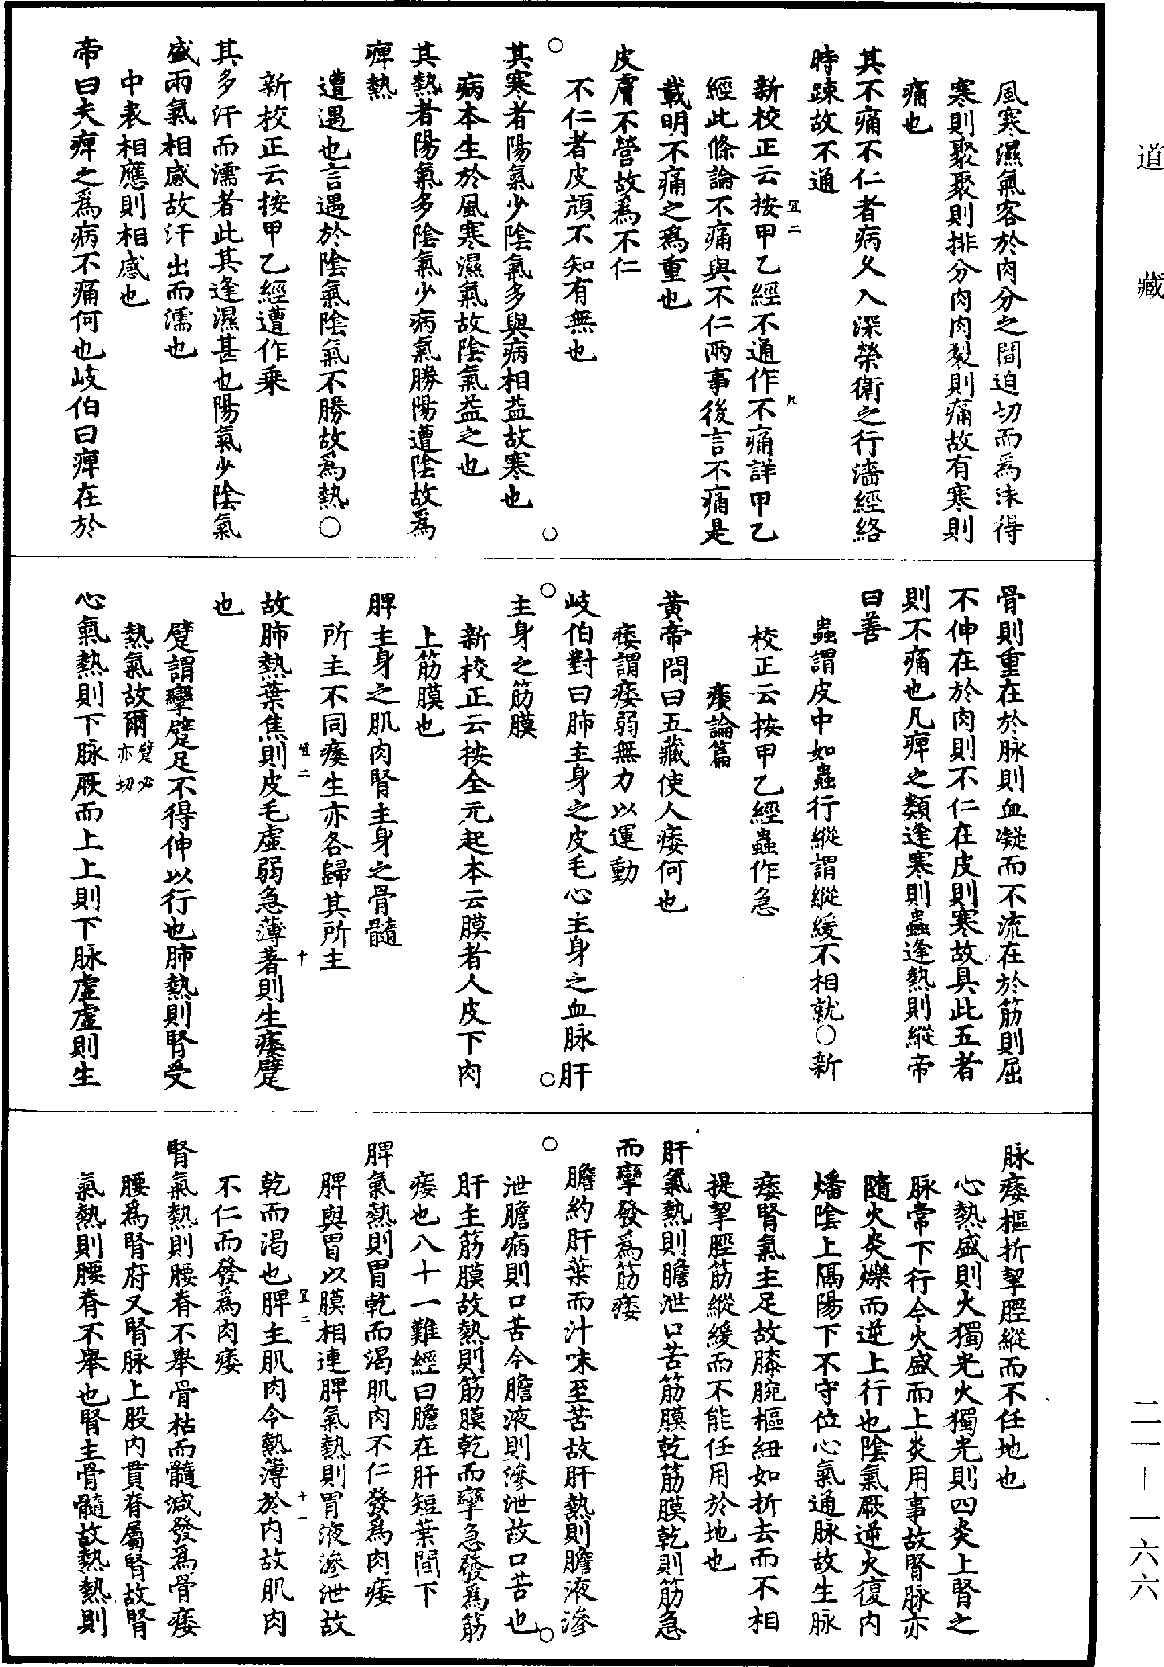 道藏
風寒濕氣客於肉分之間迫切而爲沫得
寒則聚聚則排分肉肉裂則痛故有寒則
痛也
其不痛不仁者病久入深榮衛之行濇經絡
時踈故不通
新校正云按甲乙經不通作不痛詳甲乙
經此條論不痛與不仁兩事後言不痛是
載明不痛之爲重也
皮膚不營故爲不仁
不仁者皮頑不知有無也
其寒者陽氣少陰氣多與病相益故寒也
病本生於風寒濕氣故陰氣益之也
其熱者陽氣多陰氣少病氣勝陽遭陰故爲
痺熱
遭遇也言遇於陰氣陰氣不勝故爲熱○
新校正云按甲乙經遭作乘
其多汗而濡者此其逢濕甚也陽氣少陰氣
盛兩氣相感故汗出而濡也
中表相應則相感也
帝曰夫痺之爲病不痛何也岐伯曰痺在於
骨則重在於脉則血凝而不流在於筋則屈
不伸在於肉則不仁在皮則寒故具此五者
則不痛也凡痺之類逢寒則蟲逢熱則縱帝
曰善
蟲謂皮中如蟲行縱謂縱緩不相就○新
校正云按甲乙經蟲作急
痿論篇
黃帝問曰五藏使人痿何也
痿謂痿弱無力以運動
岐伯對曰肺主身之皮毛心主身之血脉肝
主身之筋膜
新校正云按全元起本云膜者人皮下肉
上筋膜也
脾主身之肌肉腎主身之骨髓
所主不同痿生亦各歸其所主
故肺熱葉焦則皮毛虛弱急薄著則生痿躄
也
躄謂攣躄足不得伸以行也肺熱則腎受
熱氣故爾躄必亦切
心氣熱則下脉厥而上上則下脉虛虛則生
脉痿樞折挈脛縱而不任地也
心熱盛則火獨光火獨光則四炎上腎之
脉常下行今火盛而上炎用事故腎脉亦
隨火炎爍而逆上行也陰氣厥逆火復內
燔陰上隔陽下不守位心氣通脉故生脉
痿腎氣主足故膝腕樞紐如折去而不相
提挈脛筋縱緩而不能任用於地也
肝氣熱則膽泄口苦筋膜乾筋膜乾則筋急
而攣發爲筋痿
膽約肝葉而汁味至苦故肝熱則膽液滲
泄膽病則口苦今膽液則滲泄故口苦也
肝主筋膜故熱則筋膜乾而攣急發爲筋
痿也八十一難經曰膽在肝短葉間下
脾氣熱則胃乾而渴肌肉不仁發爲肉痿
脾與胃以膜相連脾氣熱則胃液滲泄故
乾而渴也脾主肌肉今熱薄於内故肌肉
不仁而發爲肉痿
腎氣熱則腰脊不舉骨枯而髓減發爲骨痿
腰爲腎府又腎脉上股内貫脊屬腎故腎
氣熱則腰脊不舉也腎主骨髓故熱熱則
二一—一六六